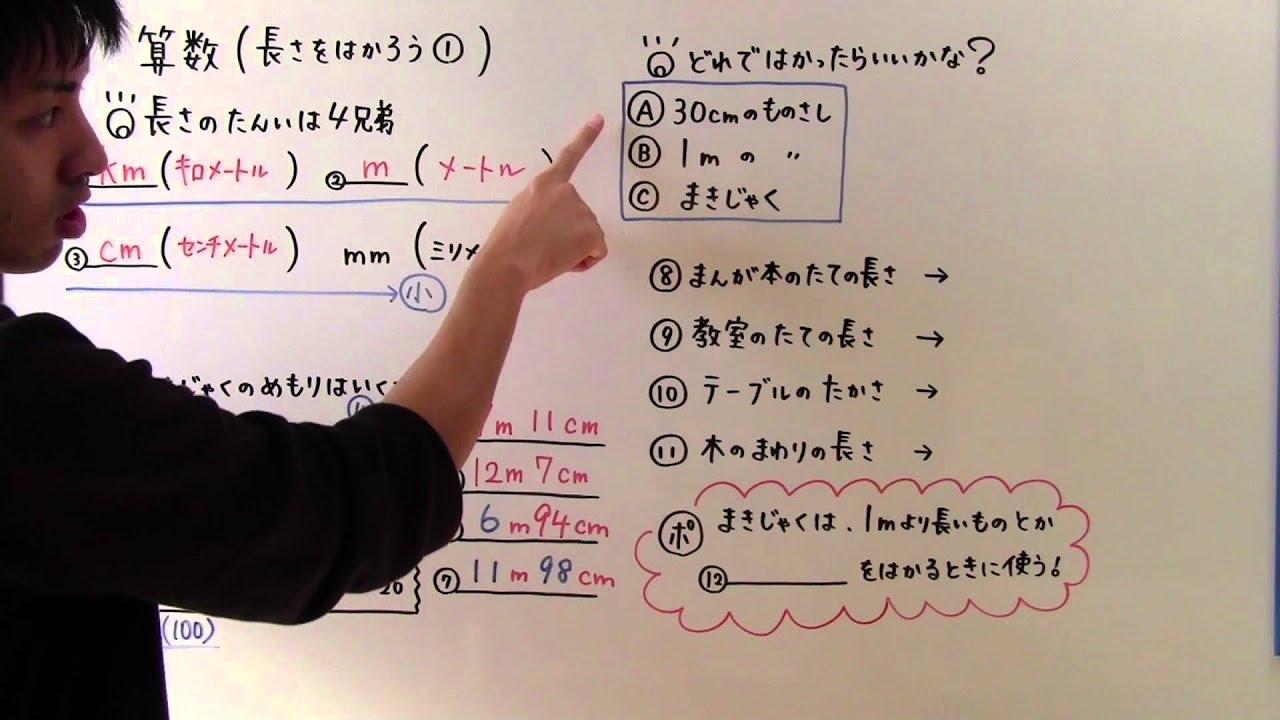 算数(長さをはかろう①)
長さのたんいは4兄弟
km(キロメートル) ②m(メートル)
③cm(センチメートル) mm(ミリメ
小
じゃくのめもりはいく
m 11cm
12m 7cm
6m94cm
⑦11m98cm
20
(100)
どれではかったらいいかな?
Ⓐ 30cmのものさし
Ⓑ 1mの 〃
Ⓒ まきじゃく
⑧まんが本のたての長さ →
⑨教室のたての長さ →
⑩テーブルのたかさ →
⑪木のまわりの長さ →
ポ まきじゃくは、1mより長いものとか
⑫______をはかるときに使う!